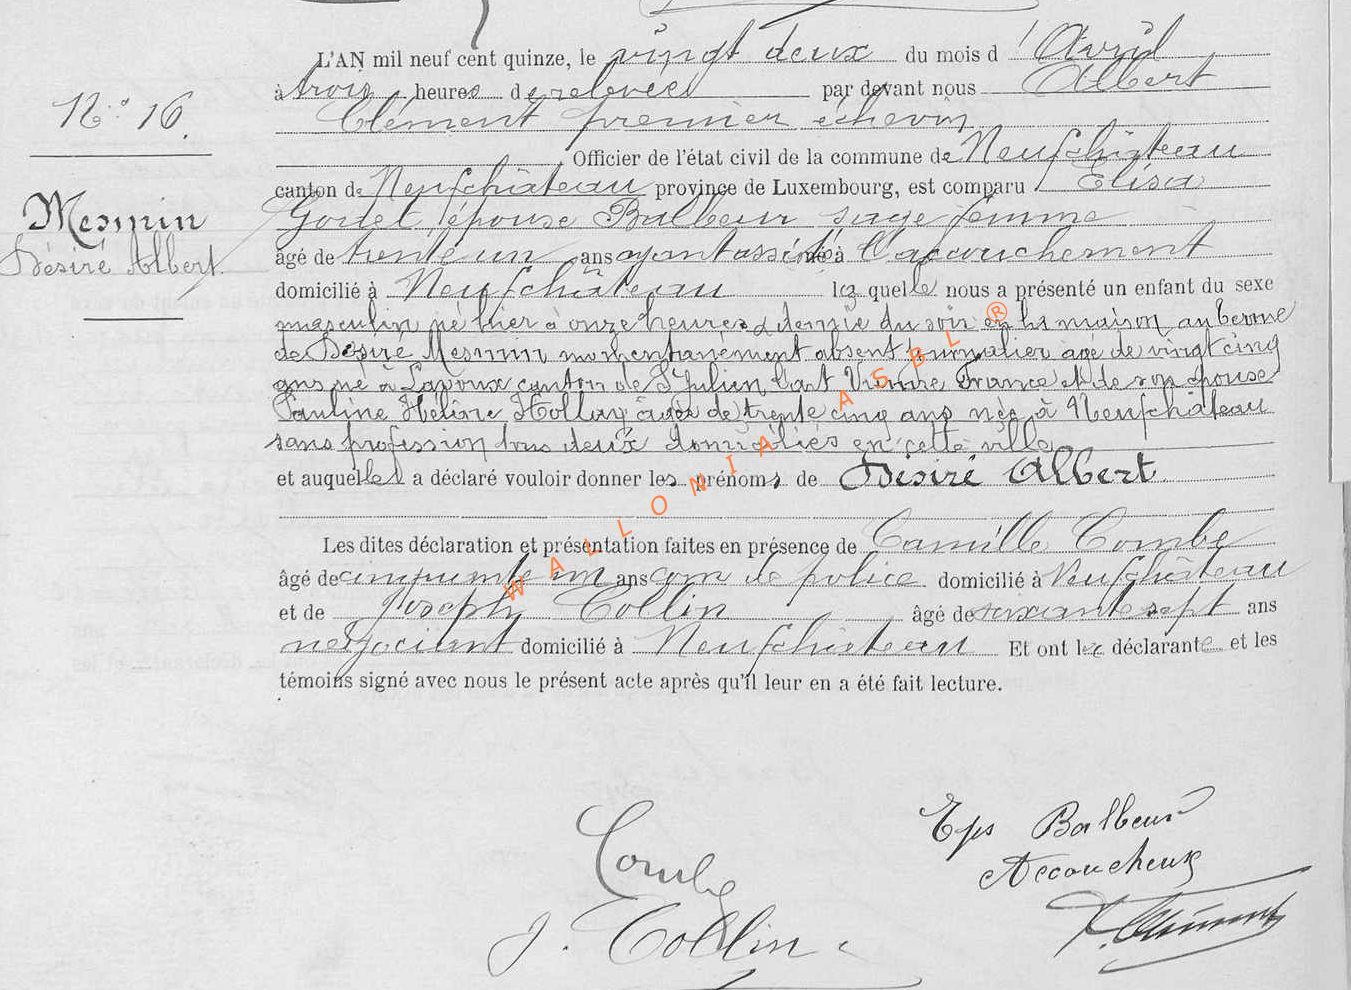 L'AN mil neuf cent quinze, le vingt deux du mois d'Avril
à trois heures de relevées par devant nous Albert
Clement premier échevin
N° 16.
Officier de l'état civil de la commune de Neufchâteau
canton de Neufchâteau province de Luxembourg, est comparu Elisa
Mesmin
Désiré Albert
épouse Balbeur sage femme
âgé de trente un ans ayant assisté à l'accouchement
domicilié à Neufchâteau lequelle nous a présenté un enfant du sexe
masculin né hier à onze heures & demie du soir en la maison
de Désiré Mesmin momentanément absent journalier âgé de vingt cinq
ans né à Lavoux canton de St Julien l'art Vienne France et de son épouse
Pauline Hélène âgée de trente cinq ans née à Neufchâteau
sans profession tous deux domiciliés en cette ville
et auquelles a déclaré vouloir donner les prénoms de Désiré Albert
Les dites déclaration et présentation faites en présence de Camille Combe
âgé de cinquante un ans com de police domicilié à Neufchâteau
et de Joseph Collin âgé de soixante sept ans
négociant domicilié à Neufchâteau Et ont le déclarante et les
témoins signé avec nous le présent acte après qu'il leur en a été fait lecture.
WALLONIA ASBL ®
Eps Balbeur
Accoucheuse
Combe
J. Collin